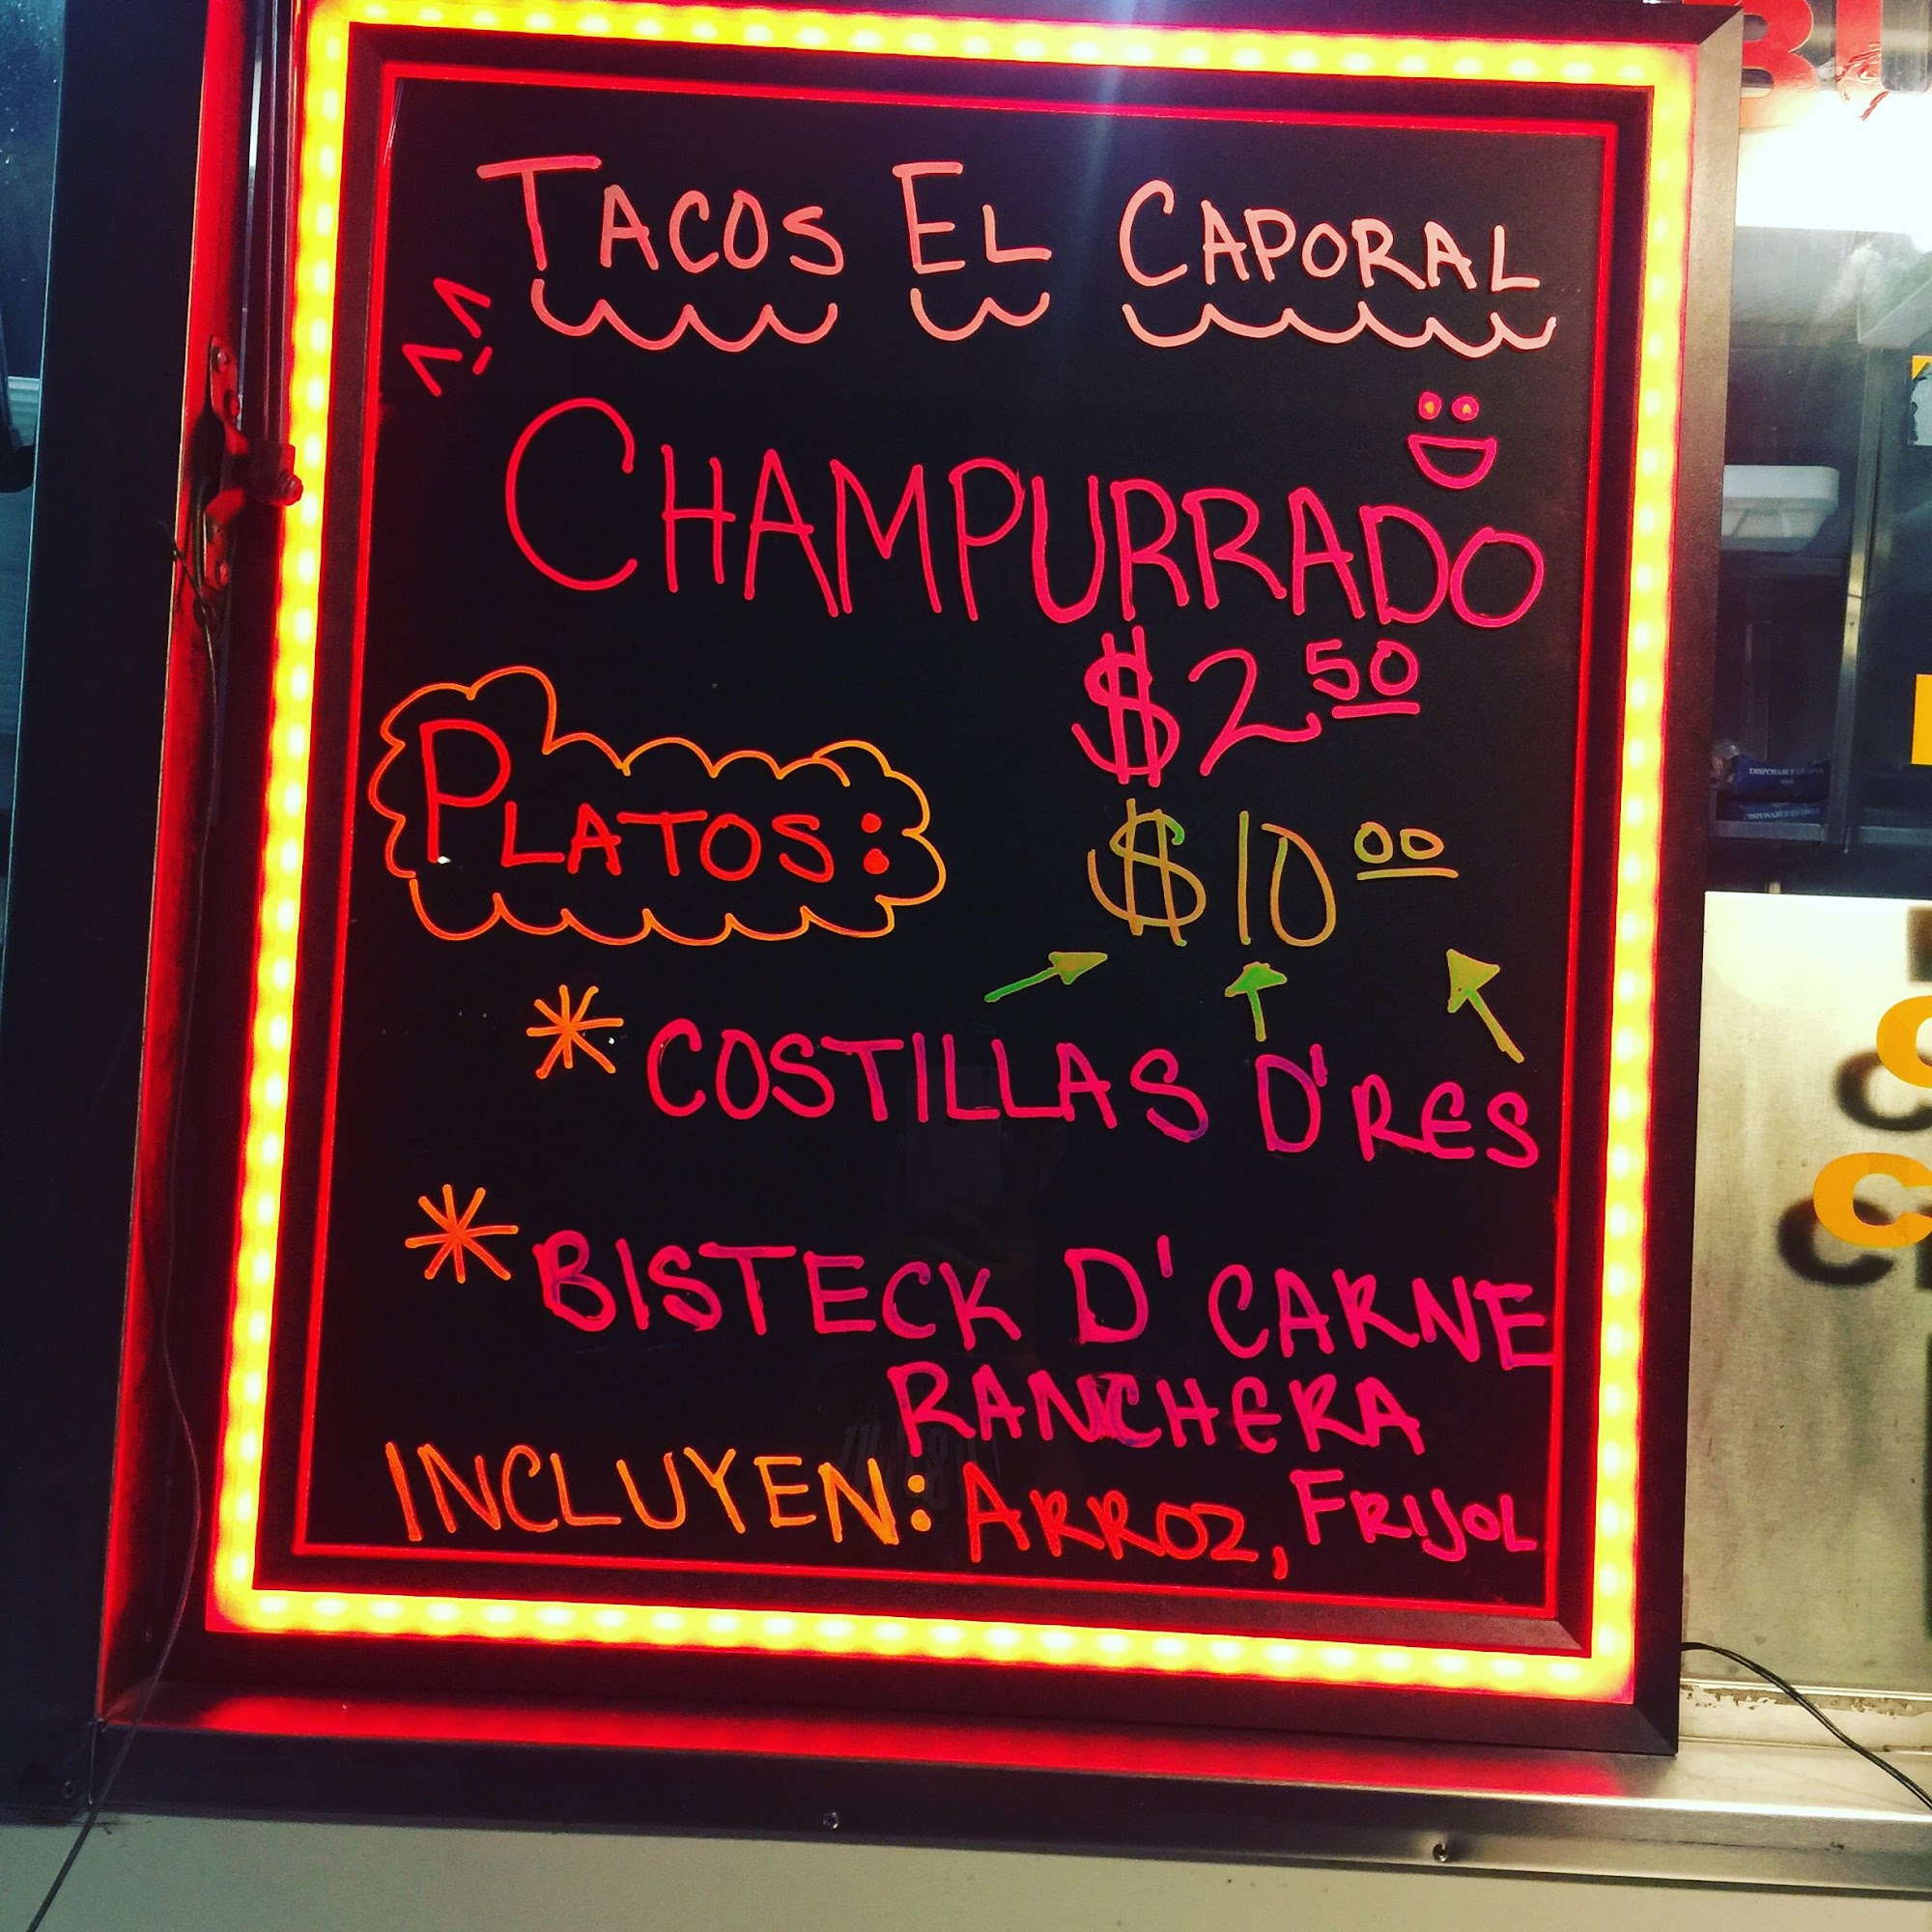 TACOS EL CAPORAL
CHAMPURRADO
$2 50
PLATOS: $10 00
* COSTILLAS D'RES
* BISTECK D' CARNE
RANCHERA
INCLUYEN: ARROZ, FRIJOL